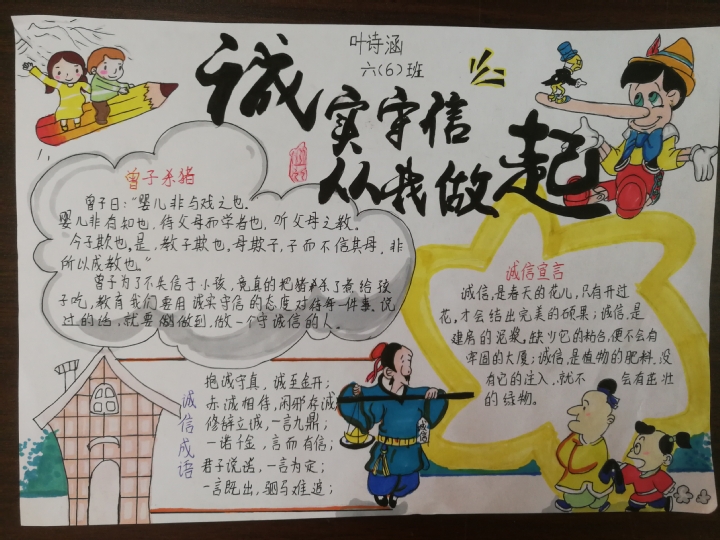 叶诗涵
六(6)班
诚实守信
从我做起
曾子杀猪
曾子曰:“婴儿非与戏之也.
婴儿非有知也,待父母而学者也,听父母之教。
今子欺也,是,教子欺也,母欺子,子而不信其母,非
所以成教也。”
曾子为了不失信于小孩,竟真的把猪杀了煮给孩
子吃,教育我们要用诚实守信的态度对待每一件事.说
过的话,就要做到,做一个守诚信的人。
诚信宣言
诚信,是春天的花儿,只有开过
花,才会结出完美的硕果;诚信,是
建房的泥浆,缺少它的粘合,便不会有
牢固的大厦;诚信,是植物的肥料,没
有它的注入,就不 会有茁壮
的绿物。
诚信成语
抱诚守真,诚至金开;
赤诚相待,闲邪存诚
修辞立诚,一言九鼎;
一诺千金,言而有信;
君子说话,一言为定;
一言既出,驷马难追;